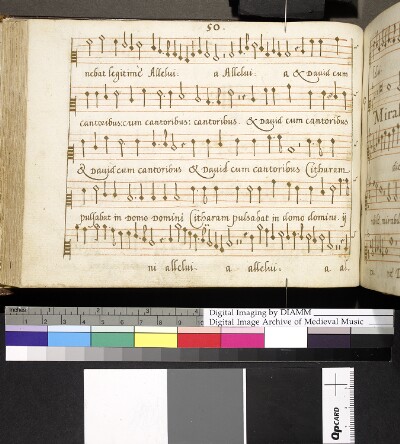 50.
nebat legitime Allelui: a Allelui: a & Dauid cum
cantoribus: cum cantoribus: cantoribus. & Dauid cum cantoribus
& Dauid cum cantoribus & Dauid cum cantoribus Citharam
pulsabat in Domo Domini Citharam pulsabat in domo domini. ij
ni allelui. a allelui. a al.
Mirab
inches 1 2 3 4
Digital Imaging by DIAMM
Digital Image Archive of Medieval Music
QPCARD